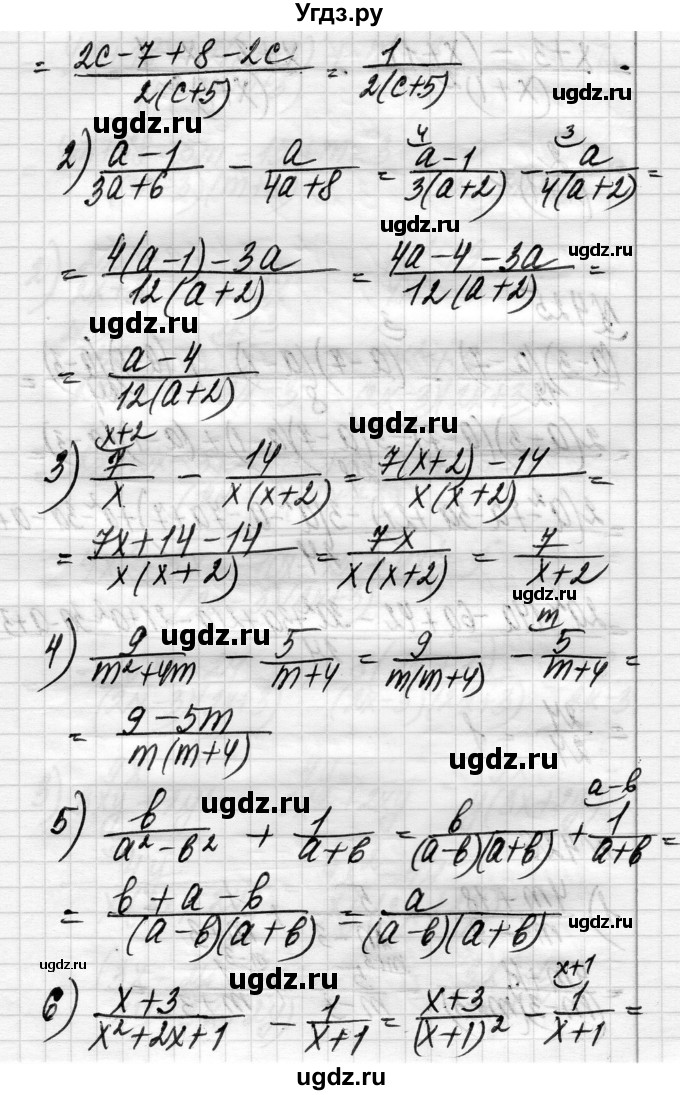 Угдз.ру
= (2c-7+8-2c)/(2(c+5)) = 1/(2(c+5))
ugdz.ru
ugdz.ru
2) (a-1)/(3a+6) - a/(4a+8) = (a-1)/(3(a+2)) ⁴ - a/(4(a+2)) ³ =
ugdz.ru
= (4(a-1)-3a)/(12(a+2)) = (4a-4-3a)/(12(a+2)) =
ugdz.ru
ugdz.ru
= (a-4)/(12(a+2))
ugdz.ru
3) 7/x ˣ⁺² - 14/(x(x+2)) = (7(x+2)-14)/(x(x+2)) =
= (7x+14-14)/(x(x+2)) = 7x/(x(x+2)) = 7/(x+2)
ugdz.ru
ugdz.ru
4) 9/(m²+4m) - 5/(m+4) = 9/(m(m+4)) - 5/(m+4) ᵐ =
= (9-5m)/(m(m+4))
ugdz.ru
ugdz.ru
5) b/(a²-b²) + 1/(a+b) = b/((a-b)(a+b)) + 1/(a+b) ᵃ⁻ᵇ =
= (b+a-b)/((a-b)(a+b)) = a/((a-b)(a+b))
ugdz.ru
ugdz.ru
ugdz.ru
6) (x+3)/(x²+2x+1) - 1/(x+1) = (x+3)/(x+1)² - 1/(x+1) ˣ⁺¹ =
ugdz.ru
ugdz.ru